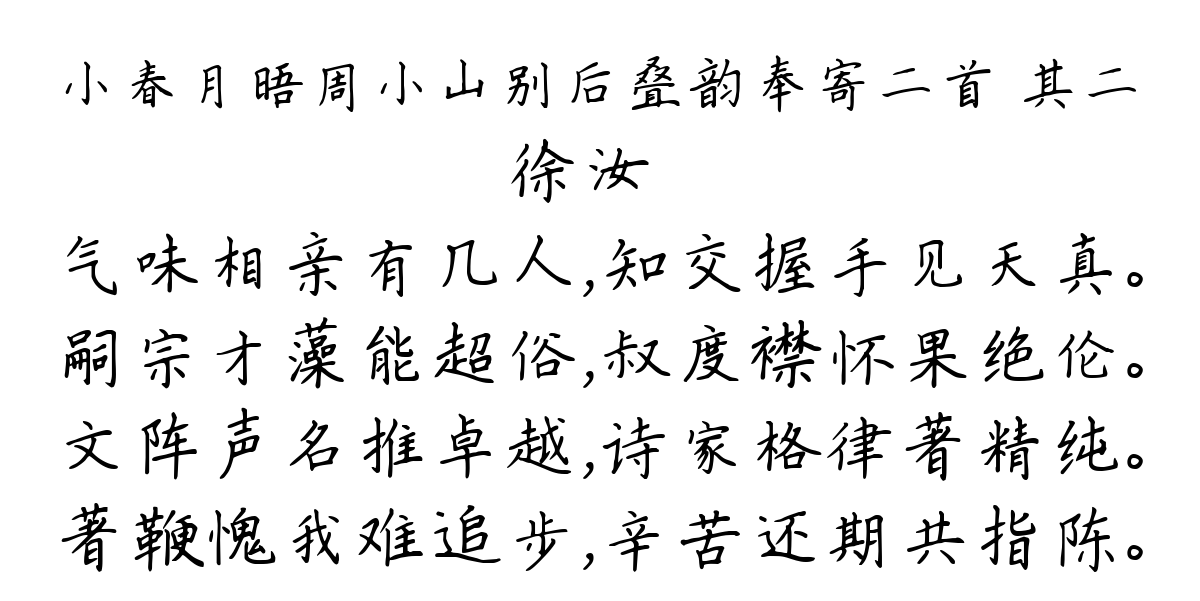 小春月晤周小山别后叠韵奉寄二首 其二
徐汝
气味相亲有几人,知交握手见天真。
嗣宗才藻能超俗,叔度襟怀果绝伦。
文阵声名推卓越,诗家格律著精纯。
著鞭愧我难追步,辛苦还期共指陈。